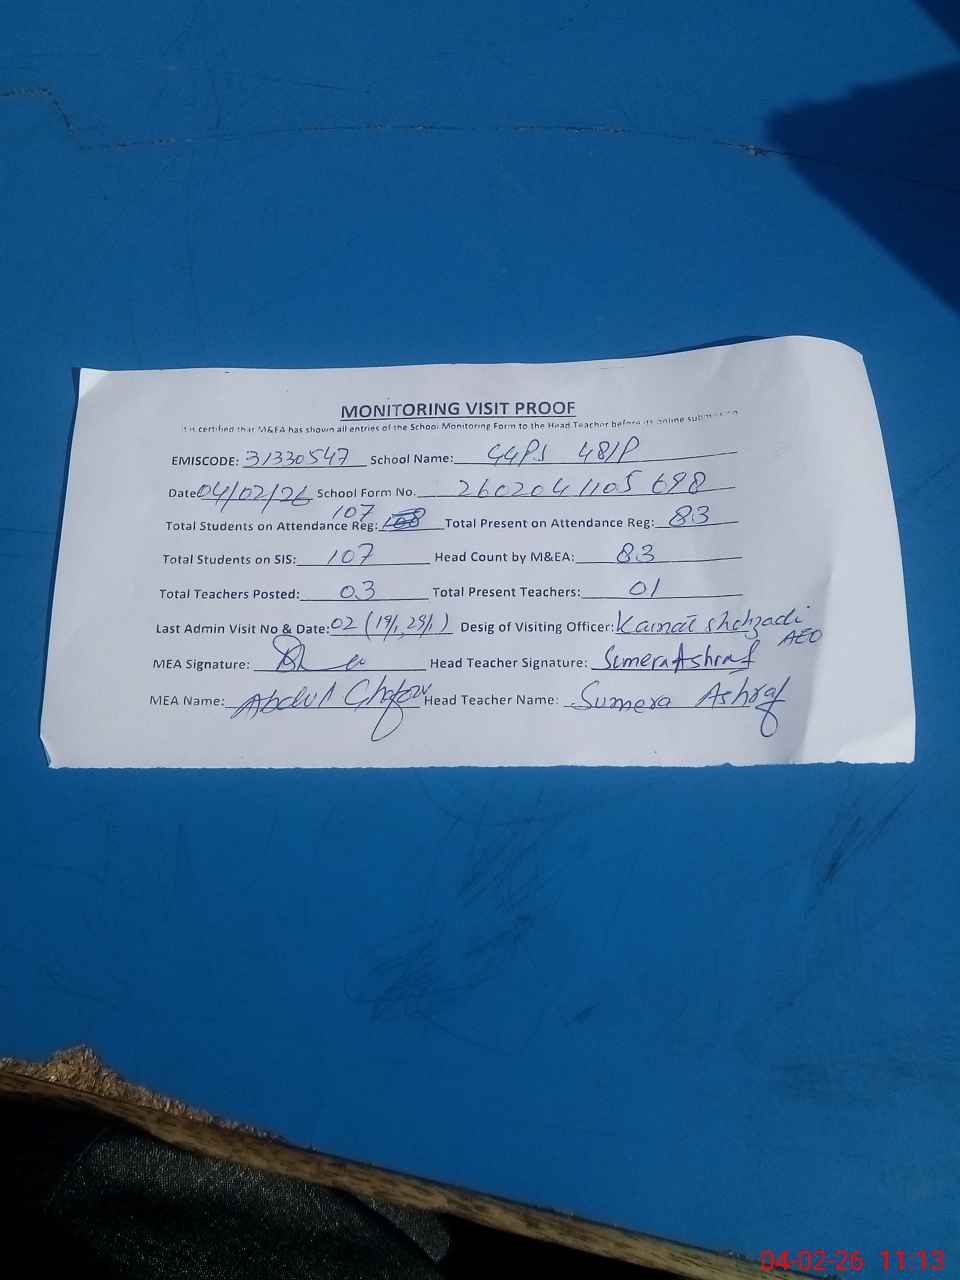 MONITORING VISIT PROOF
It is certified that M&EA has shown all entries of the School Monitoring Form to the Head Teacher before its online submission
EMISCODE: 31330547 School Name: GGPS 48/P
Date 04/02/26 School Form No. 2602041105698
107
Total Students on Attendance Reg: 108 Total Present on Attendance Reg: 83
Total Students on SIS: 107 Head Count by M&EA: 83
Total Teachers Posted: 03 Total Present Teachers: 01
Last Admin Visit No & Date: 02 (19/1, 29/1) Desig of Visiting Officer: Kainat shehzadi
AEO
MEA Signature: Head Teacher Signature: Sumera Ashraf
MEA Name: Abdul Ghafoor Head Teacher Name: Sumera Ashraf
04-02-26 11:13